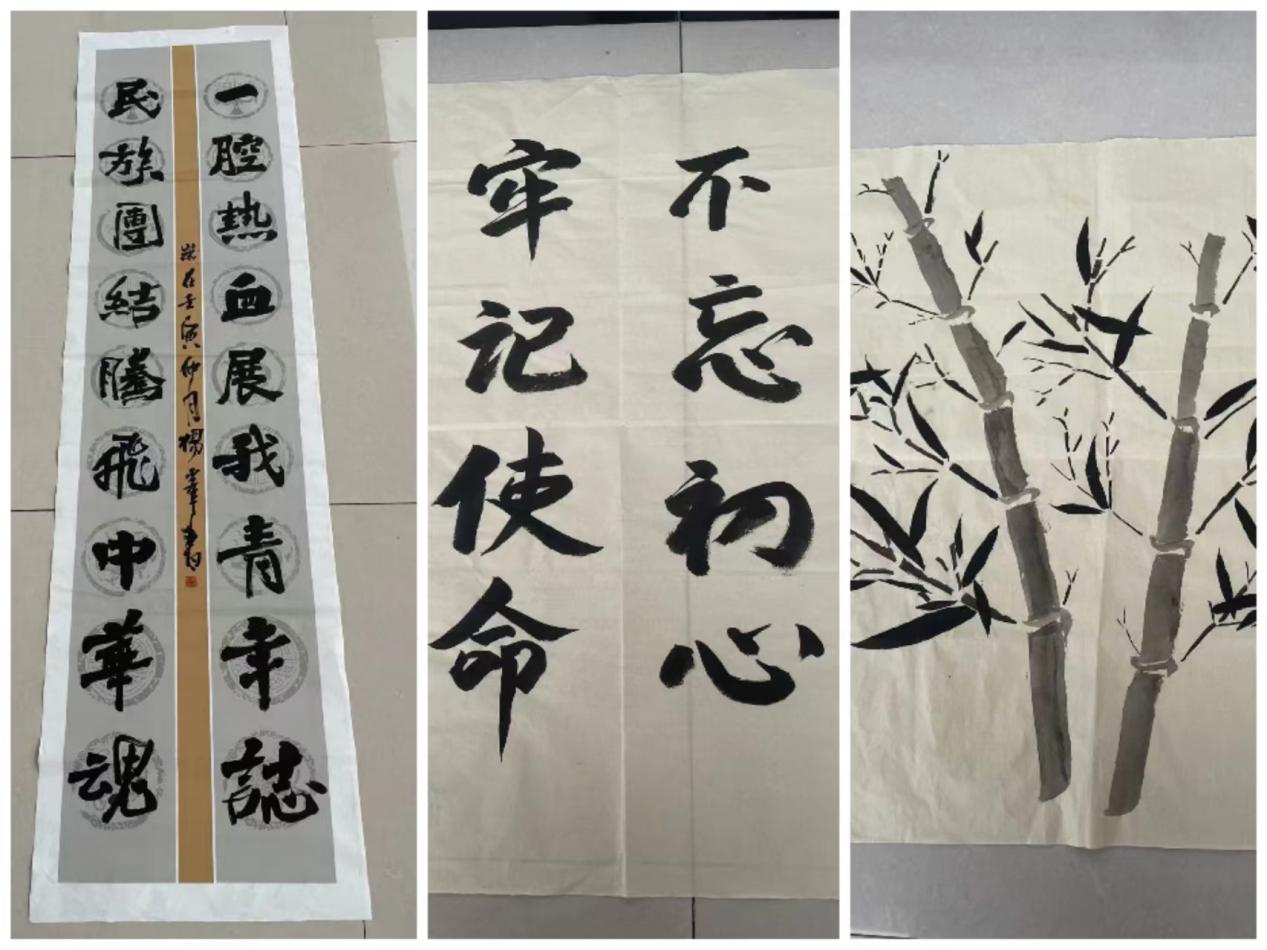 一腔熱血展我青年誌
民族團結騰飛中華魂
歲在壬寅仲月楊書
不忘初心
牢记使命